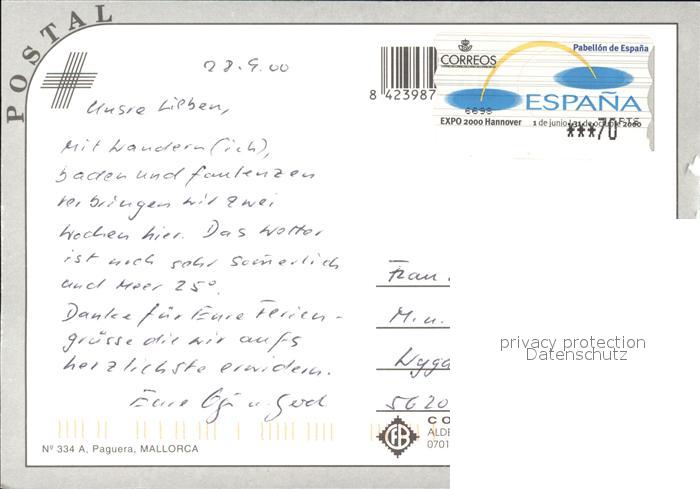 POSTAL
28.9.00
Unsre Lieben,
Mit Wandern (ich),
baden und faulenzen
verbringen wir zwei
Wochen hier. Das Wetter
ist noch sehr sommerlich
und Meer 25°.
Danke für Eure Ferien-
grüsse die wir aufs
herzlichste erwidern.
Eure u.
Nº 334 A, Paguera, MALLORCA
8 423987
CORREOS
Pabellón de España
ESPAÑA
6693
EXPO 2000 Hannover 1 de junio / 31 de octubre 2000
***70 PTS
Frau
M. u.
Wyga
5620
privacy protection
Datenschutz
CO
ALDE
0701